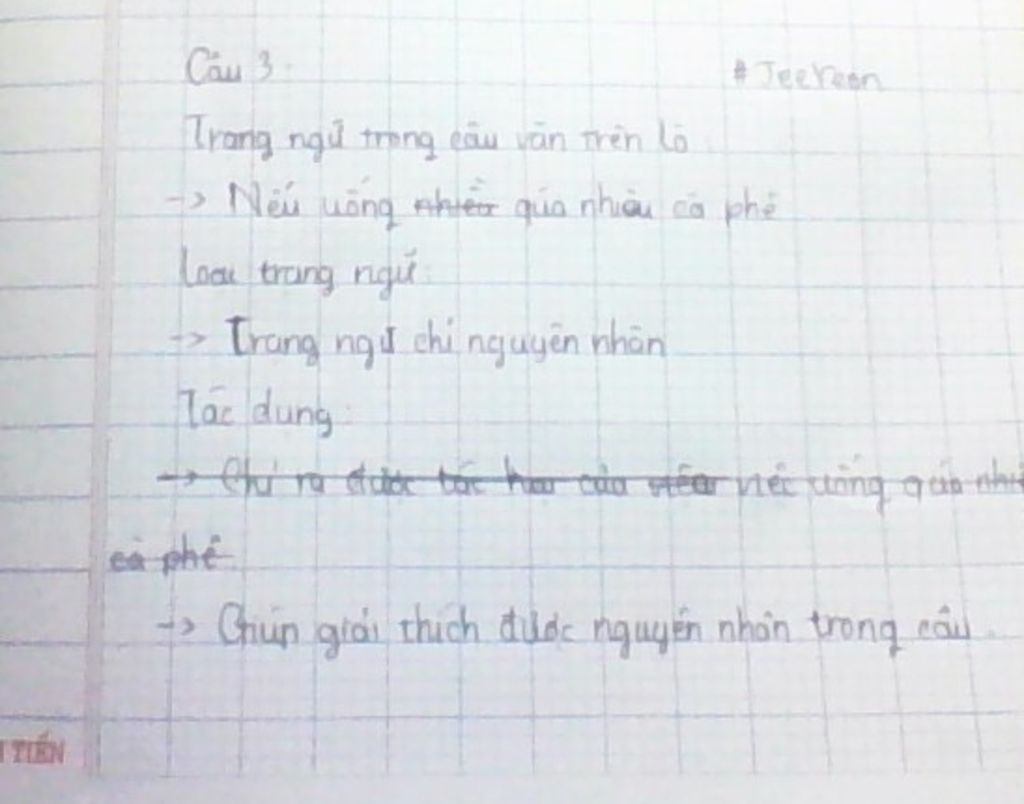 Câu 3 #JeeYeon
Trạng ngữ trong câu văn trên là
-> Nếu uống nhiều quá nhiều cà phê
Loại trạng ngữ:
-> Trạng ngữ chỉ nguyên nhân
Tác dụng:
-> Chỉ ra được tác hại của nếu uống quá nhi
cà phê
-> Giúp giải thích được nguyên nhân trong câu.
TIẾN